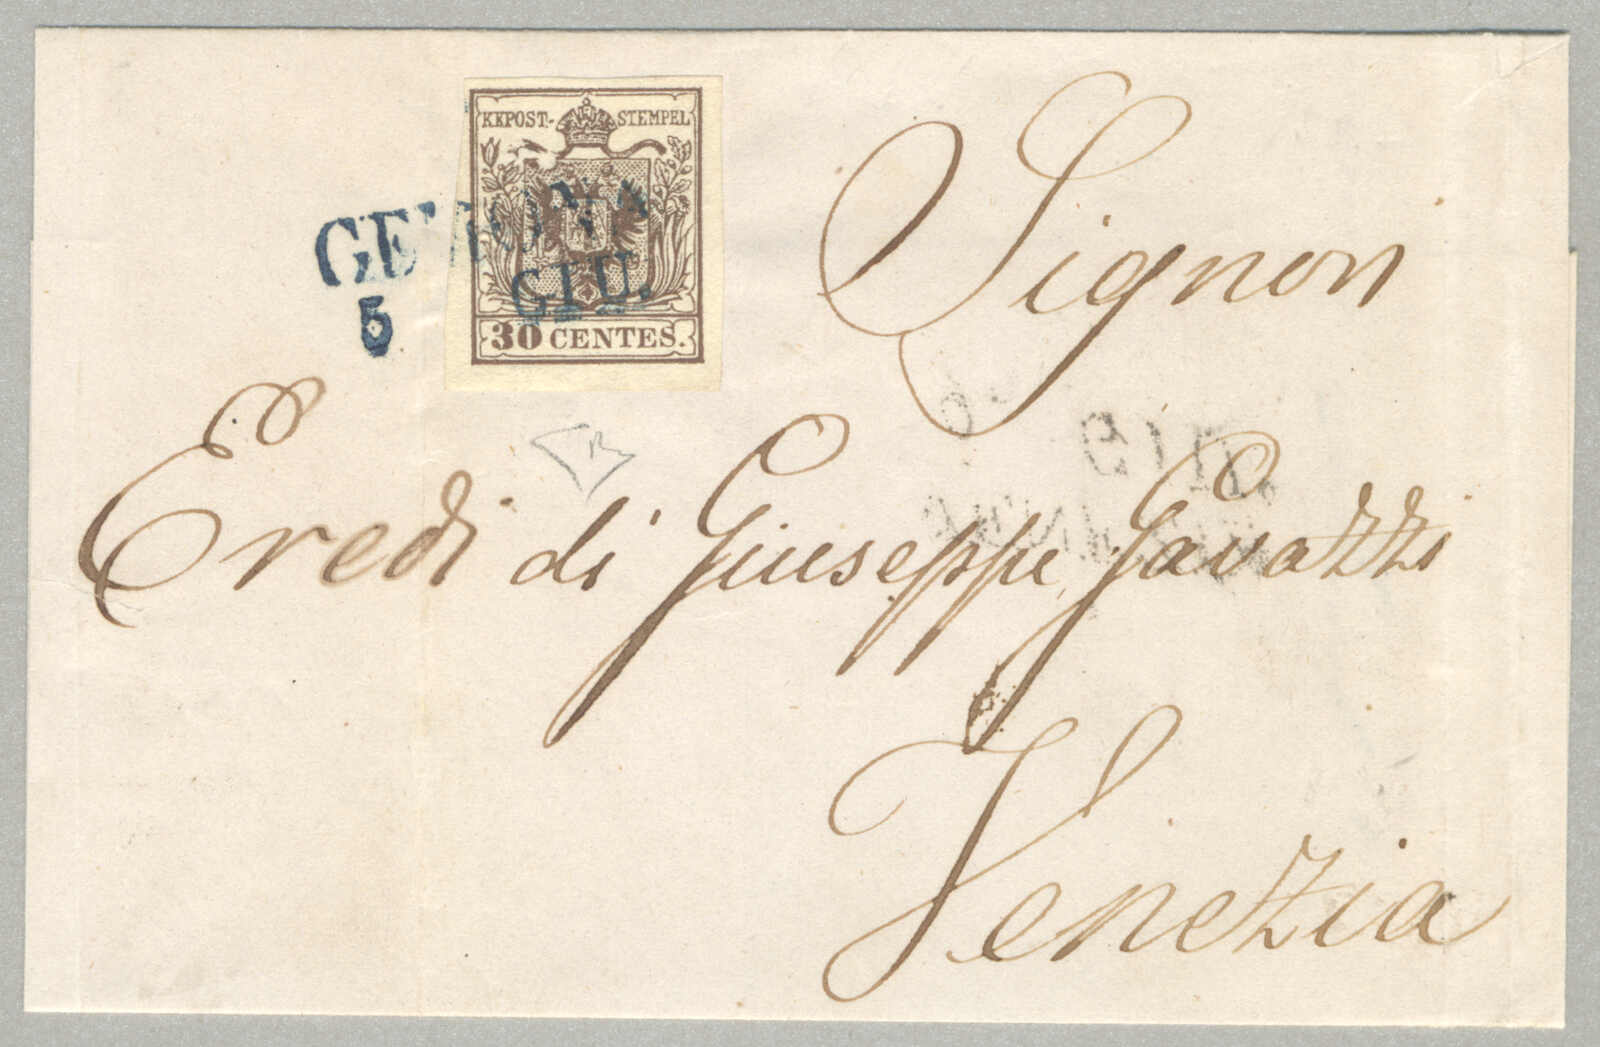 KKPOST- STEMPEL
GEMONA
5 GIU.
30 CENTES.
Signori
Eredi di Giuseppe Gavazzi
Venezia